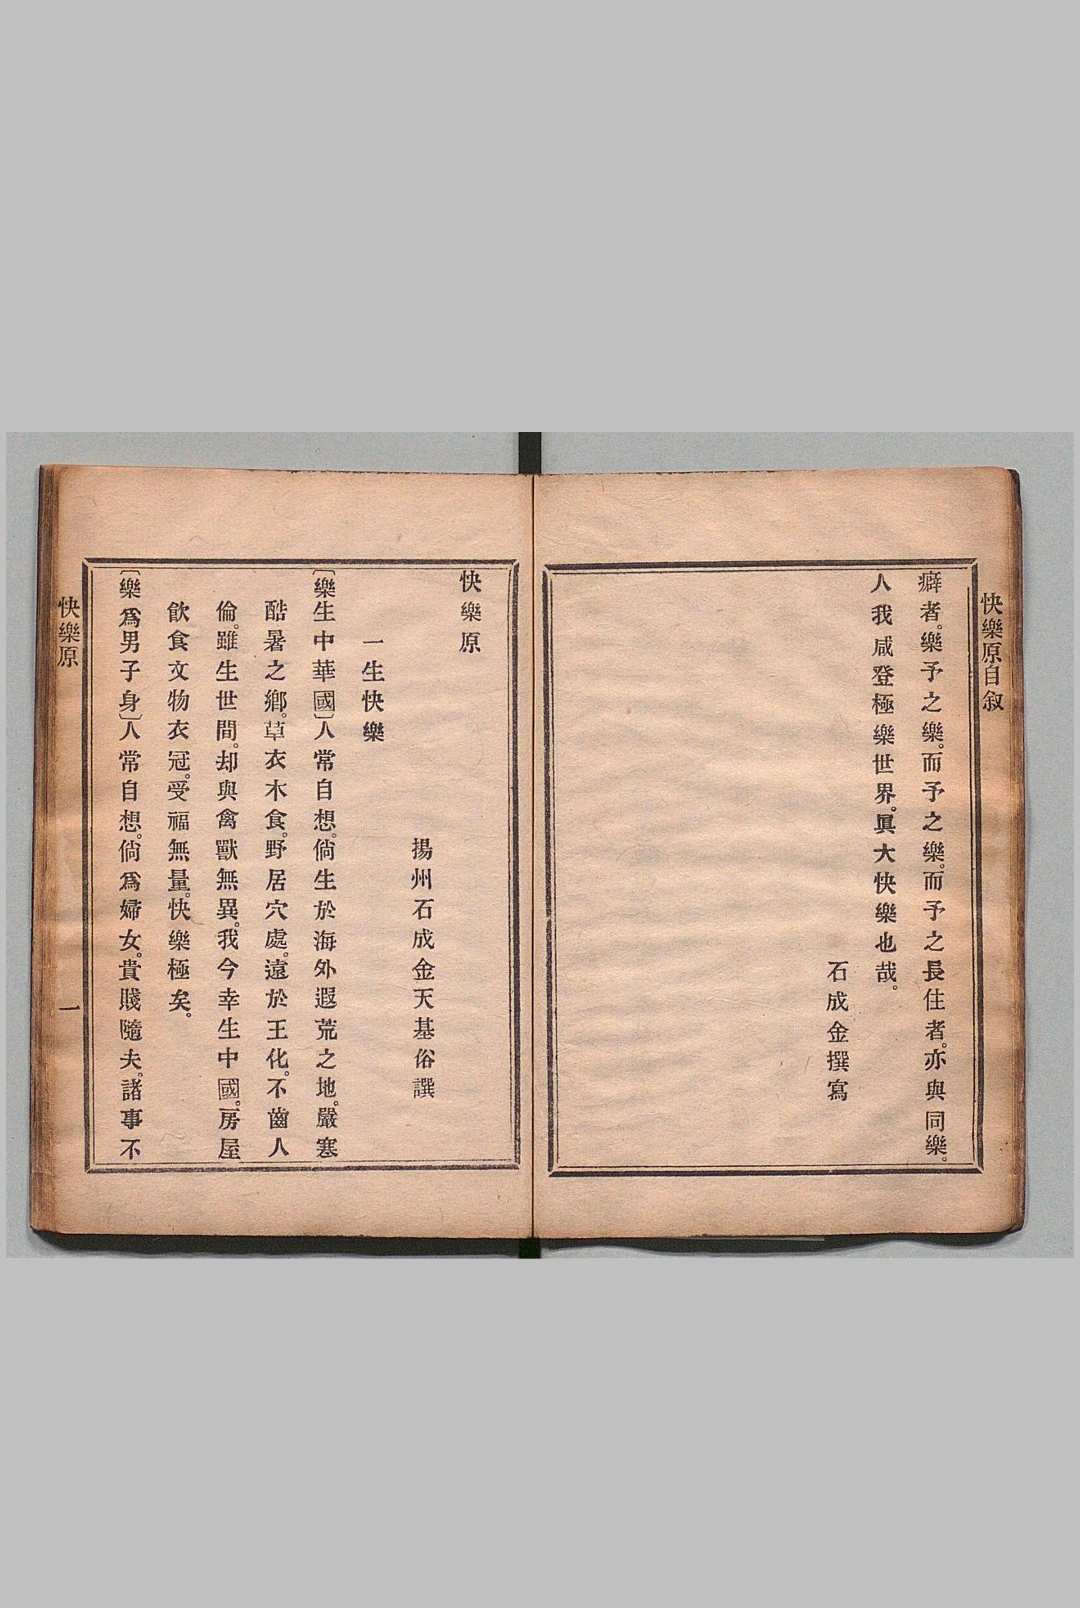 快樂原自叙
癖者。樂予之樂。而予之樂。而予之長住者。亦與同樂。
人我咸登極樂世界。眞大快樂也哉。
石成金撰寫
快樂原
揚州石成金天基俗譔
一生快樂
〔樂生中華國〕人常自想。倘生於海外遐荒之地。嚴寒
酷暑之鄉。草衣木食。野居穴處。遠於王化。不齒人
倫。雖生世間。却與禽獸無異。我今幸生中國。房屋
飲食文物衣冠。受福無量。快樂極矣。
〔樂爲男子身〕人常自想。倘爲婦女。貴賤隨夫。諸事不
快樂原
一